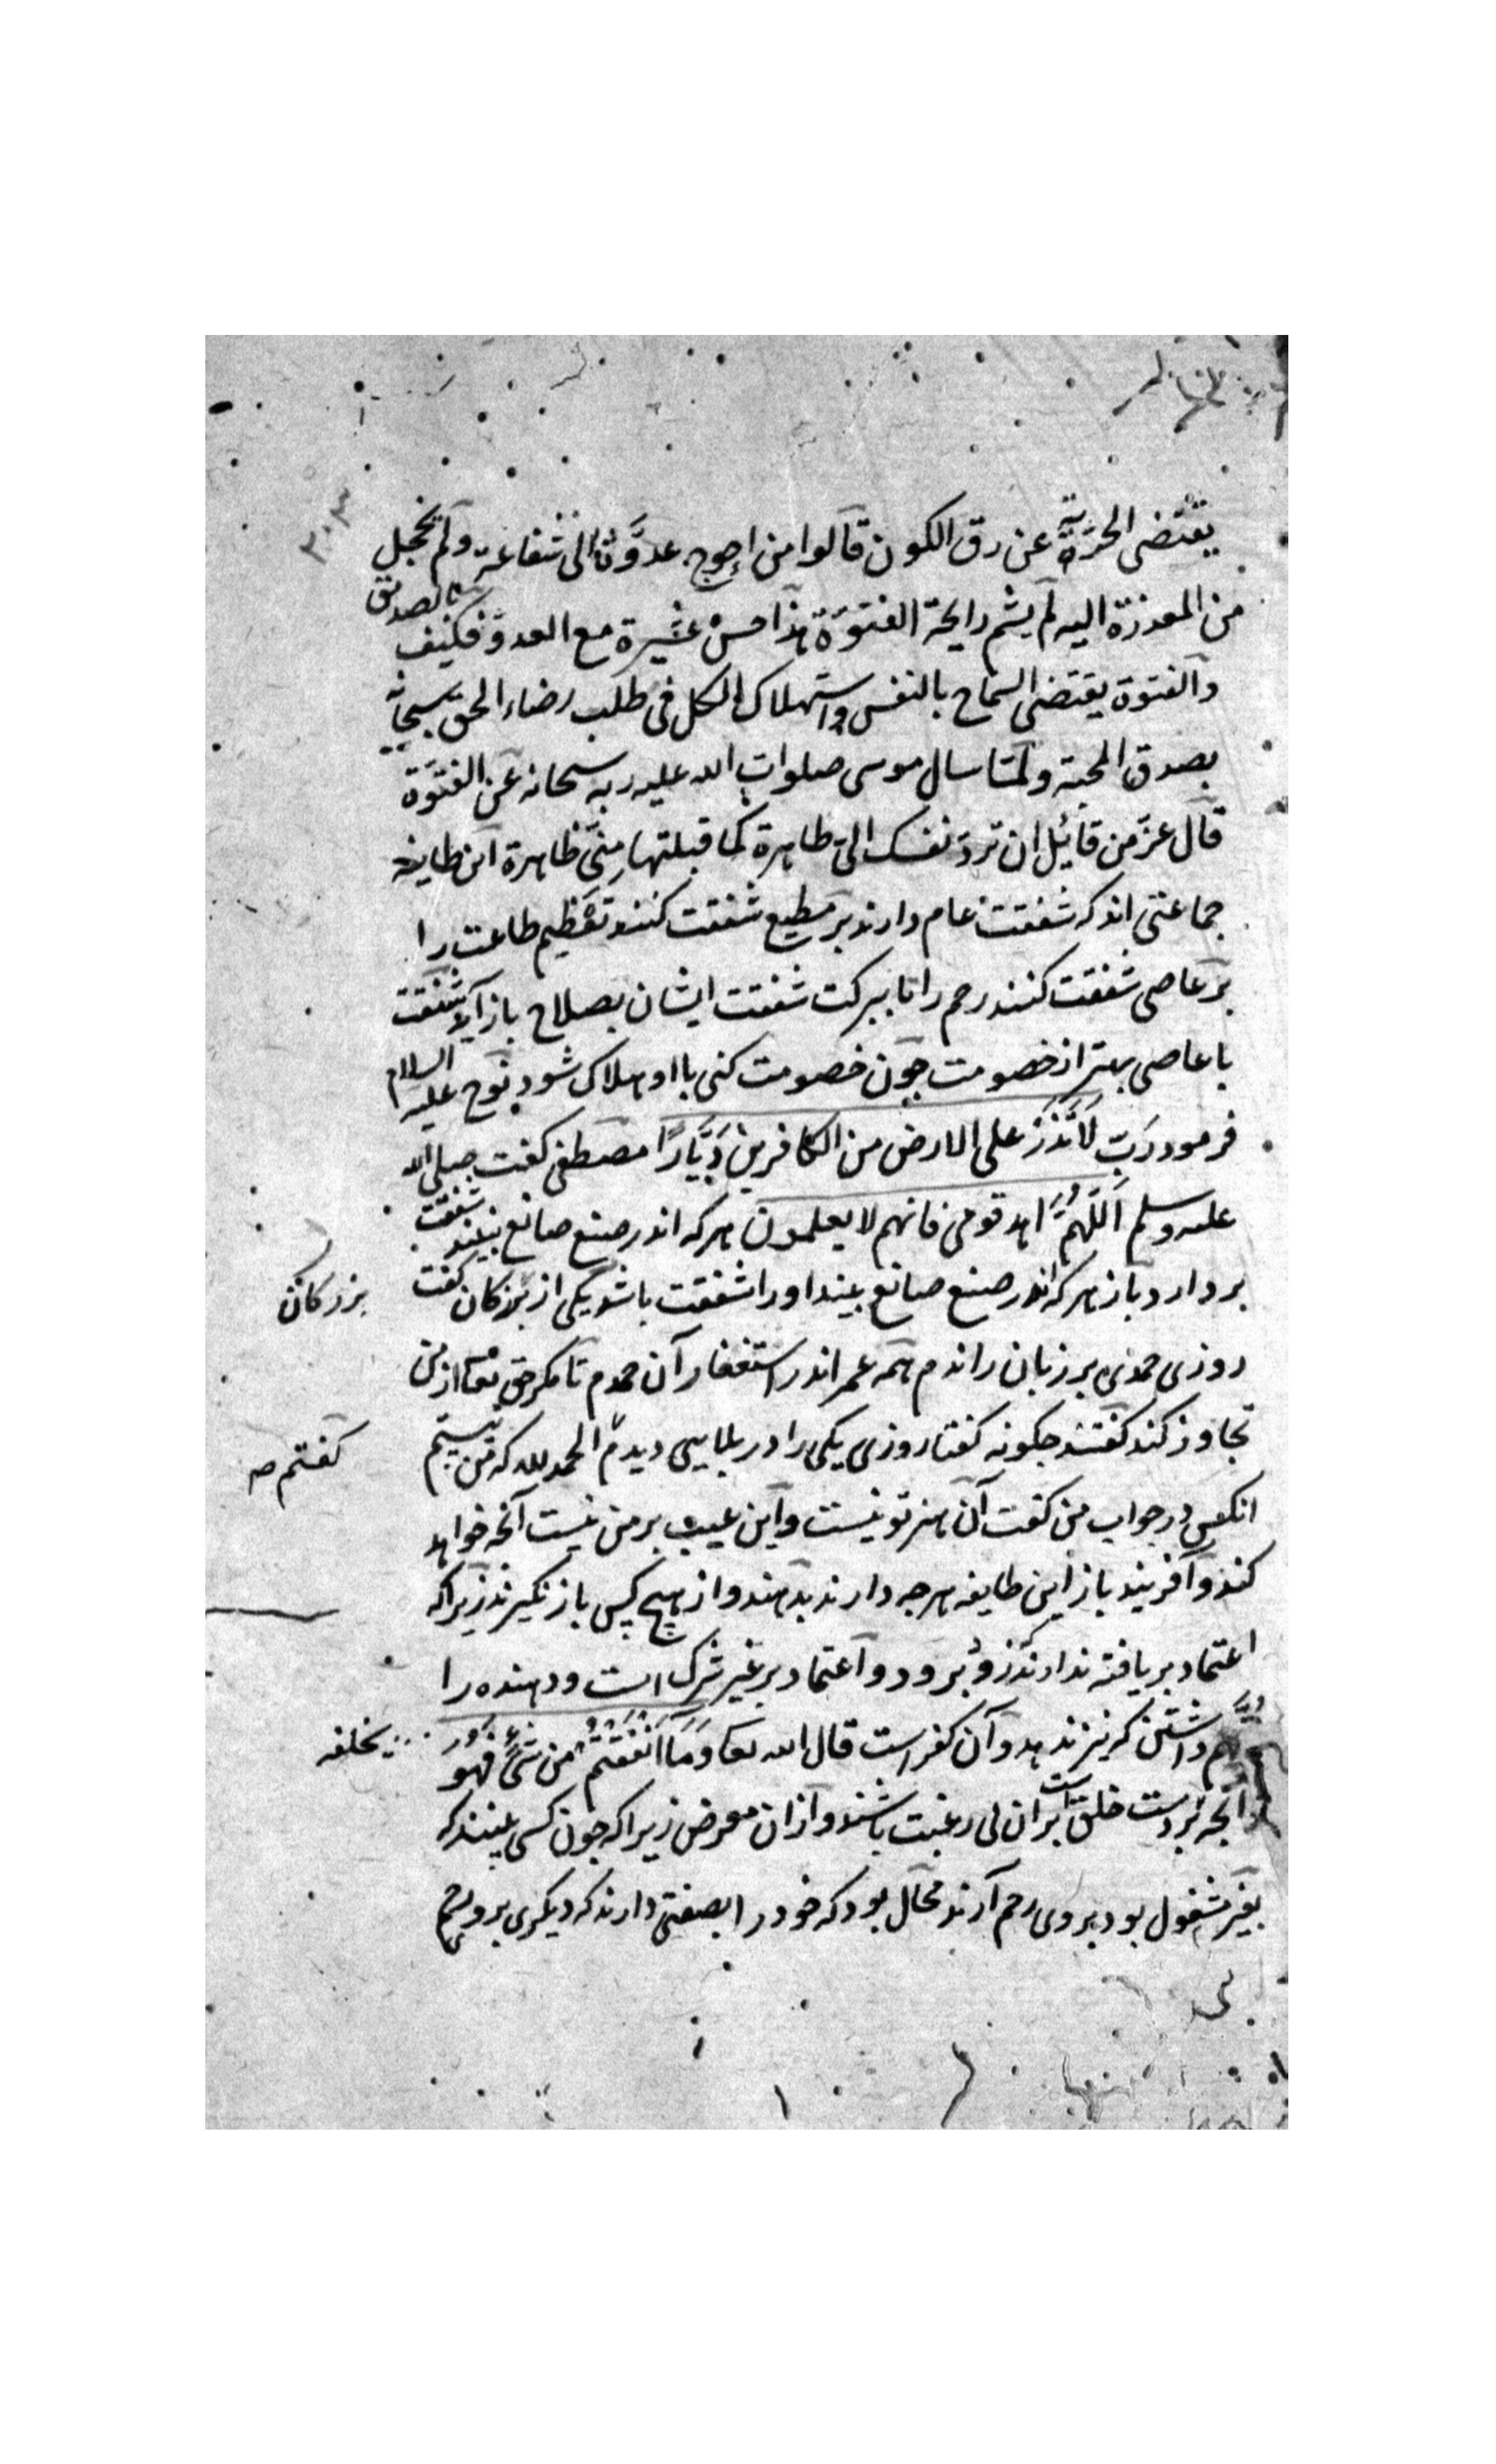 يقتضى الحرية عن رق الكون قالوا من احوج عدوّنا الى شفاعة ولم يخجل
من المعذرة اليه لم يشم رايحة الفتوّة هذا حسن عشيرة مع العدوّ فكيف بالصديق
والفتوة يقتضى السماح بالنفس واستهلاك الكل فى طلب رضاء الحق سبحانه
بصدق المحبة ولمّا سال موسى صلوات الله عليه ربه سبحانه عن الفتوّة
قال عزّ من قايل ان تردّ نفسك الىّ طاهرة كما قبلتها منى ظاهرة اين طايفه
جماعتى اند كه شفقت عام دارند بر مطيع شفقت كنند تعظيم طاعت را
بر عاصى شفقت كنند رحم را تا ببركت شفقت ايشان بصلاح باز آيد شفقت
با عاصى بهتر از خصومت چون خصومت كنى با او هلاك شود نوح عليه السلام
فرمود ربّ لا تذر على الارض من الكافرين ديّارًا مصطفى كفت صلى الله
عليه وسلم اللهمّ اهد قومى فانهم لا يعلمون هركه اندر صنع صانع نبيند شفقت
بردارد باز هركه اندر صنع صانع بيند اورا شفقت باشد يكى از بزركان كفت
بزركان
روزى حمدى بر زبان راندم همه عمر اندر استغفار آن حمدم تا مكر حق تعا از من
تجاوز كند كفتند چكونه كفتا روزى يكى را در بلايى ديدم الحمد لله كه من نيستم
كفتم صه
انكس در جواب من كفت آن هنر تو نيست واين عيب بر من نيست آنچه خواهد
كند وآفريند باز اين طايفه هرچه دارند بدهند واز هيچ كس باز نكيرند زيراكه
اعتماد بر يافته ندارند كزو برود واعتماد بر غير شرك است ودهنده را
داشتن كه نيز ندهد وآن كفر است قال الله تعا وَمَا اَنْفَقْتُمْ من شئ فهو
يخلفه
وآنچه بردست خلق است بران بى رغبت باشند وازان معرض زيراكه چون كسى بينند كه
بغير مشغول بود بروى رحم آرند محال بود كه خود را بصفتى دارند كه ديكرى برو رحم